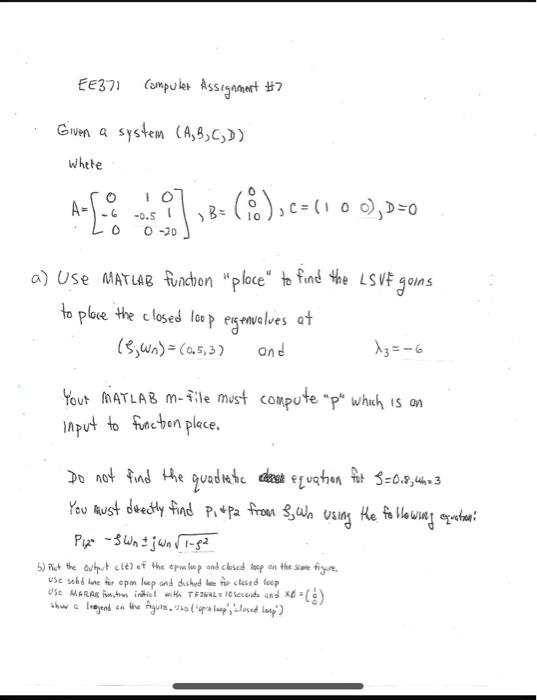 EE371 Computer Assignment #7
Given a system (A,B,C,D)
Where
A=[0 1 0; -6 -0.5 1; 0 0 -20], B=(0; 0; 10), C=(1 0 0), D=0
a) Use MATLAB function "place" to find the LSVF gains
to place the closed loop eigenvalues at
(ζ,ωn)=(0.5,3) and λ3=-6
Your MATLAB m-file must compute "p" which is an
input to function place.
Do not find the quadratic equation for ζ=0.8, ωn=3
You must directly find P1&P2 from ζ,ωn using the following equation:
P1,2= -ζωn ± jωn√1-ζ²
b) Plot the output c(t) of the open loop and closed loop on the same figure.
use solid line for open loop and dashed line for closed loop
Use MATLAB function initial with TFINAL=10 seconds and x0=(1; 0; 0)
show a legend on the figure. Use ('open loop','closed loop')